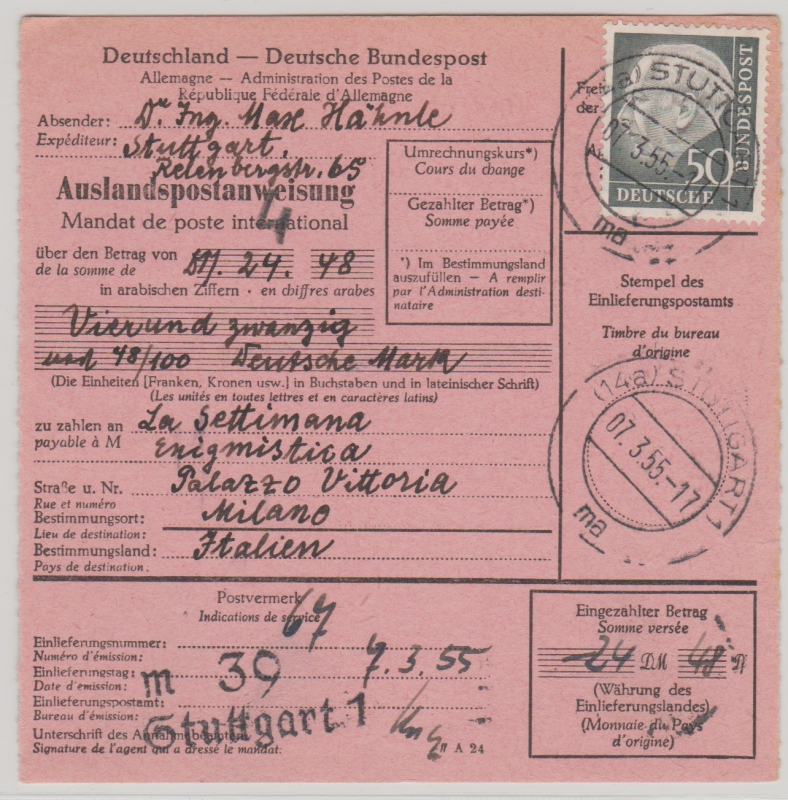 Deutschland — Deutsche Bundespost
Allemagne — Administration des Postes de la
République Fédérale d'Allemagne
Absender: Dr. Ing. Max Hähnle
Expéditeur: Stuttgart,
Relenbergstr. 65
Auslandspostanweisung
Mandat de poste international
4
über den Betrag von DM. 24. 48
de la somme de
in arabischen Ziffern · en chiffres arabes
Vierund zwanzig
und 48/100 Deutsche Mark
(Die Einheiten [Franken, Kronen usw.] in Buchstaben und in lateinischer Schrift)
(Les unités en toutes lettres et en caractères latins)
zu zahlen an La Settimana
payable à M Enigmistica
Straße u. Nr. Palazzo Vittoria
Rue et numéro
Bestimmungsort: Milano
Lieu de destination:
Bestimmungsland: Italien
Pays de destination:
Umrechnungskurs*)
Cours du change
Gezahlter Betrag*)
Somme payée
*) Im Bestimmungsland
auszufüllen — A remplir
par l'Administration desti-
nataire
Frei
der
50
DEUTSCHE
BUNDESPOST
(14a) STUTTGART 1
07.3.55.-17
ma
Stempel des
Einlieferungspostamts
Timbre du bureau
d'origine
(14a) STUTTGART 1
07.3.55.-17
ma
Postvermerk
Indications de service
67
Einlieferungsnummer:
Numéro d'émission:
Einlieferungstag: 7.3.55
Date d'emission:
m 39
Einlieferungspostamt:
Bureau d'émission:
Stuttgart 1
Unterschrift des Annahmebeamten
Signature de l'agent qui a dressé le mandat:
A 24
Eingezahlter Betrag
Somme versée
24 DM 48 Pf
(Währung des
Einlieferungslandes)
(Monnaie du Pays
d'origine)